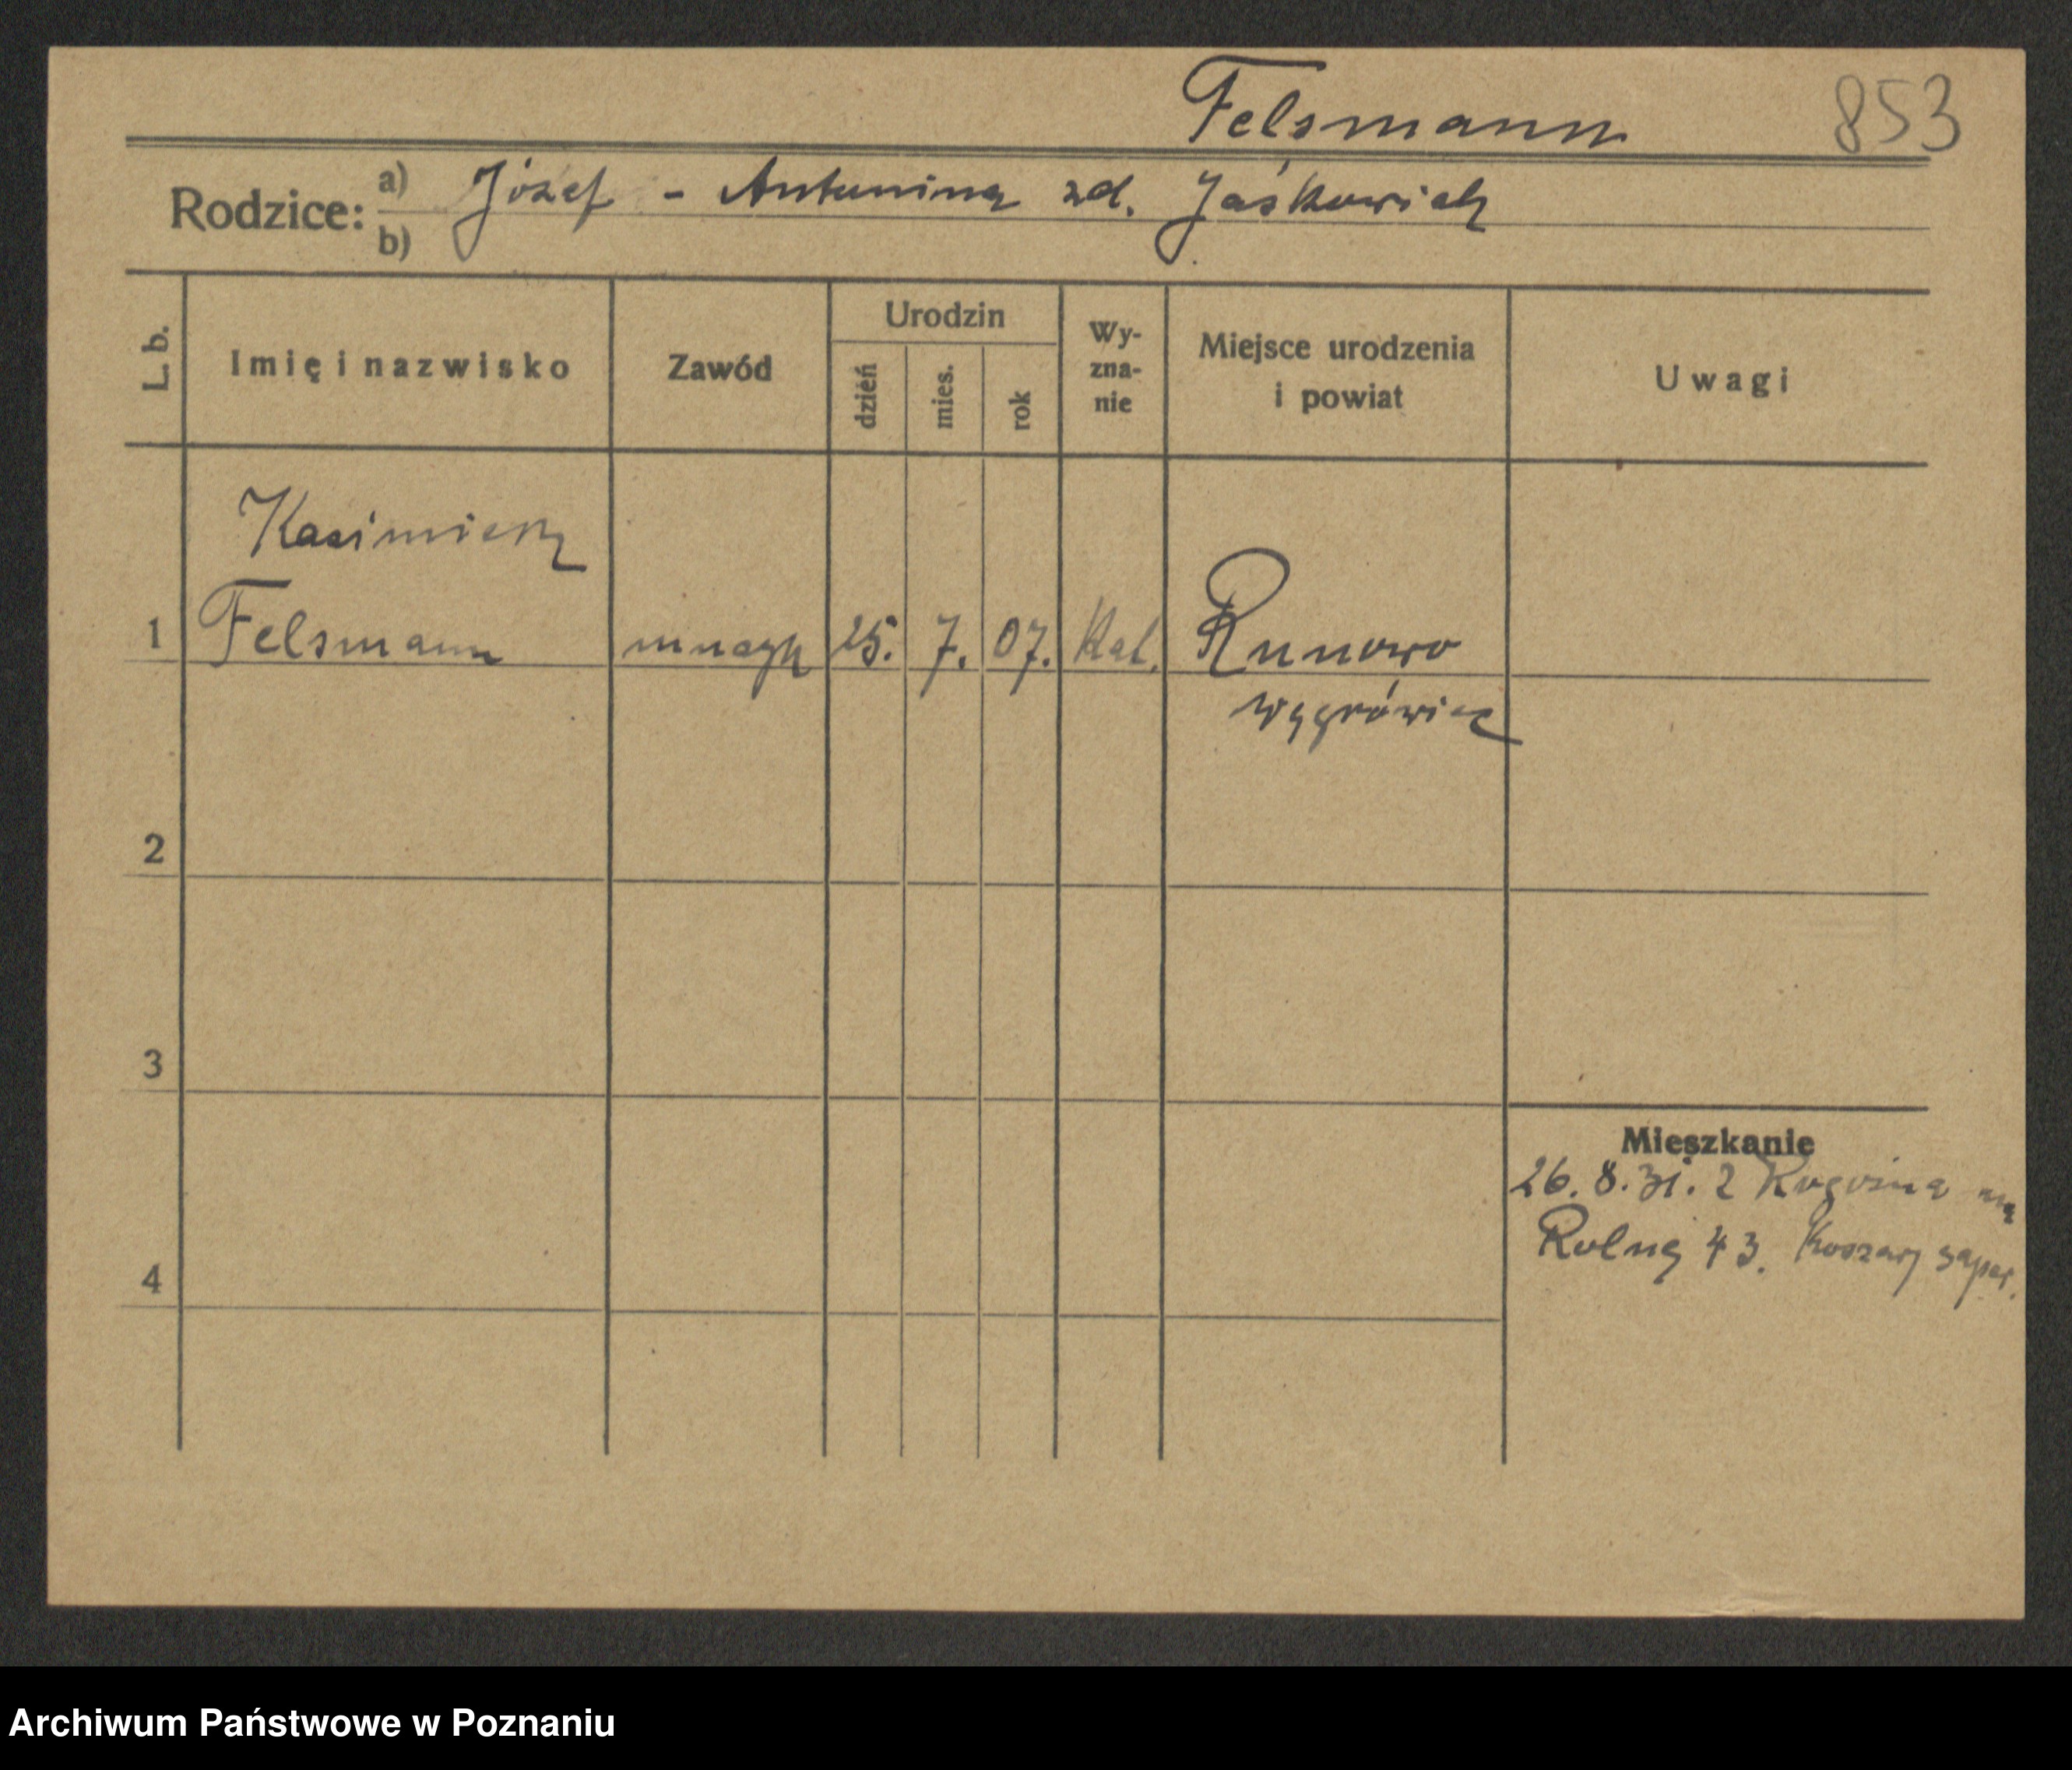 Felsmann 853
Rodzice: a) Józef - Antonina zd. Jaśkowiak
b)
L. b. Imię i nazwisko Zawód Urodzin dzień mies. rok Wyznanie Miejsce urodzenia i powiat Uwagi
Kazimierz
1 Felsmann muzyk 25. 7. 07. Kat. Runowo
Wągrówiec
2
3
Mieszkanie
26.8.31. z Rogoźna na
Rolną 43. Koszary saper.
4
Archiwum Państwowe w Poznaniu